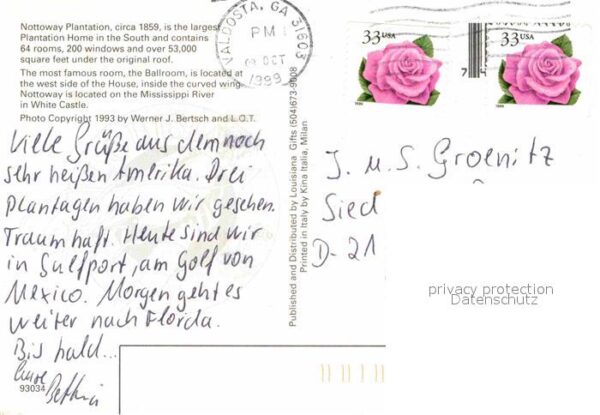 Nottoway Plantation, circa 1859, is the largest
Plantation Home in the South and contains
64 rooms, 200 windows and over 53,000
square feet under the original roof.
The most famous room, the Ballroom, is located at
the west side of the House, inside the curved wing.
Nottoway is located on the Mississippi River
in White Castle.
Photo Copyright 1993 by Werner J. Bertsch and L.O.T.
Viele Grüße aus dem noch
sehr heißen Amerika. Drei
Plantagen haben wir gesehen.
Traumhaft. Heute sind wir
in Gulfport, am Golf von
Mexico. Morgen geht es
weiter nach Florida.
Bis bald...
Eure
Bettina
93034
Published and Distributed by Louisiana Gifts (504)673-9808
Printed in Italy by Kina Italia, Milan
VALDOSTA, GA 31603
PM
OCT
1999
33 USA
33 USA
7
J. u. S. Groenitz
Sied
D-21
privacy protection
Datenschutz